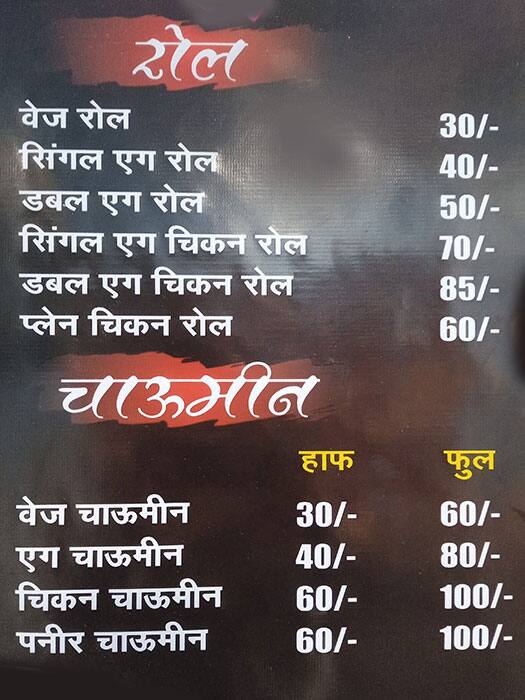 रोल
वेज रोल 30/-
सिंगल एग रोल 40/-
डबल एग रोल 50/-
सिंगल एग चिकन रोल 70/-
डबल एग चिकन रोल 85/-
प्लेन चिकन रोल 60/-
चाऊमीन
हाफ फुल
वेज चाऊमीन 30/- 60/-
एग चाऊमीन 40/- 80/-
चिकन चाऊमीन 60/- 100/-
पनीर चाऊमीन 60/- 100/-